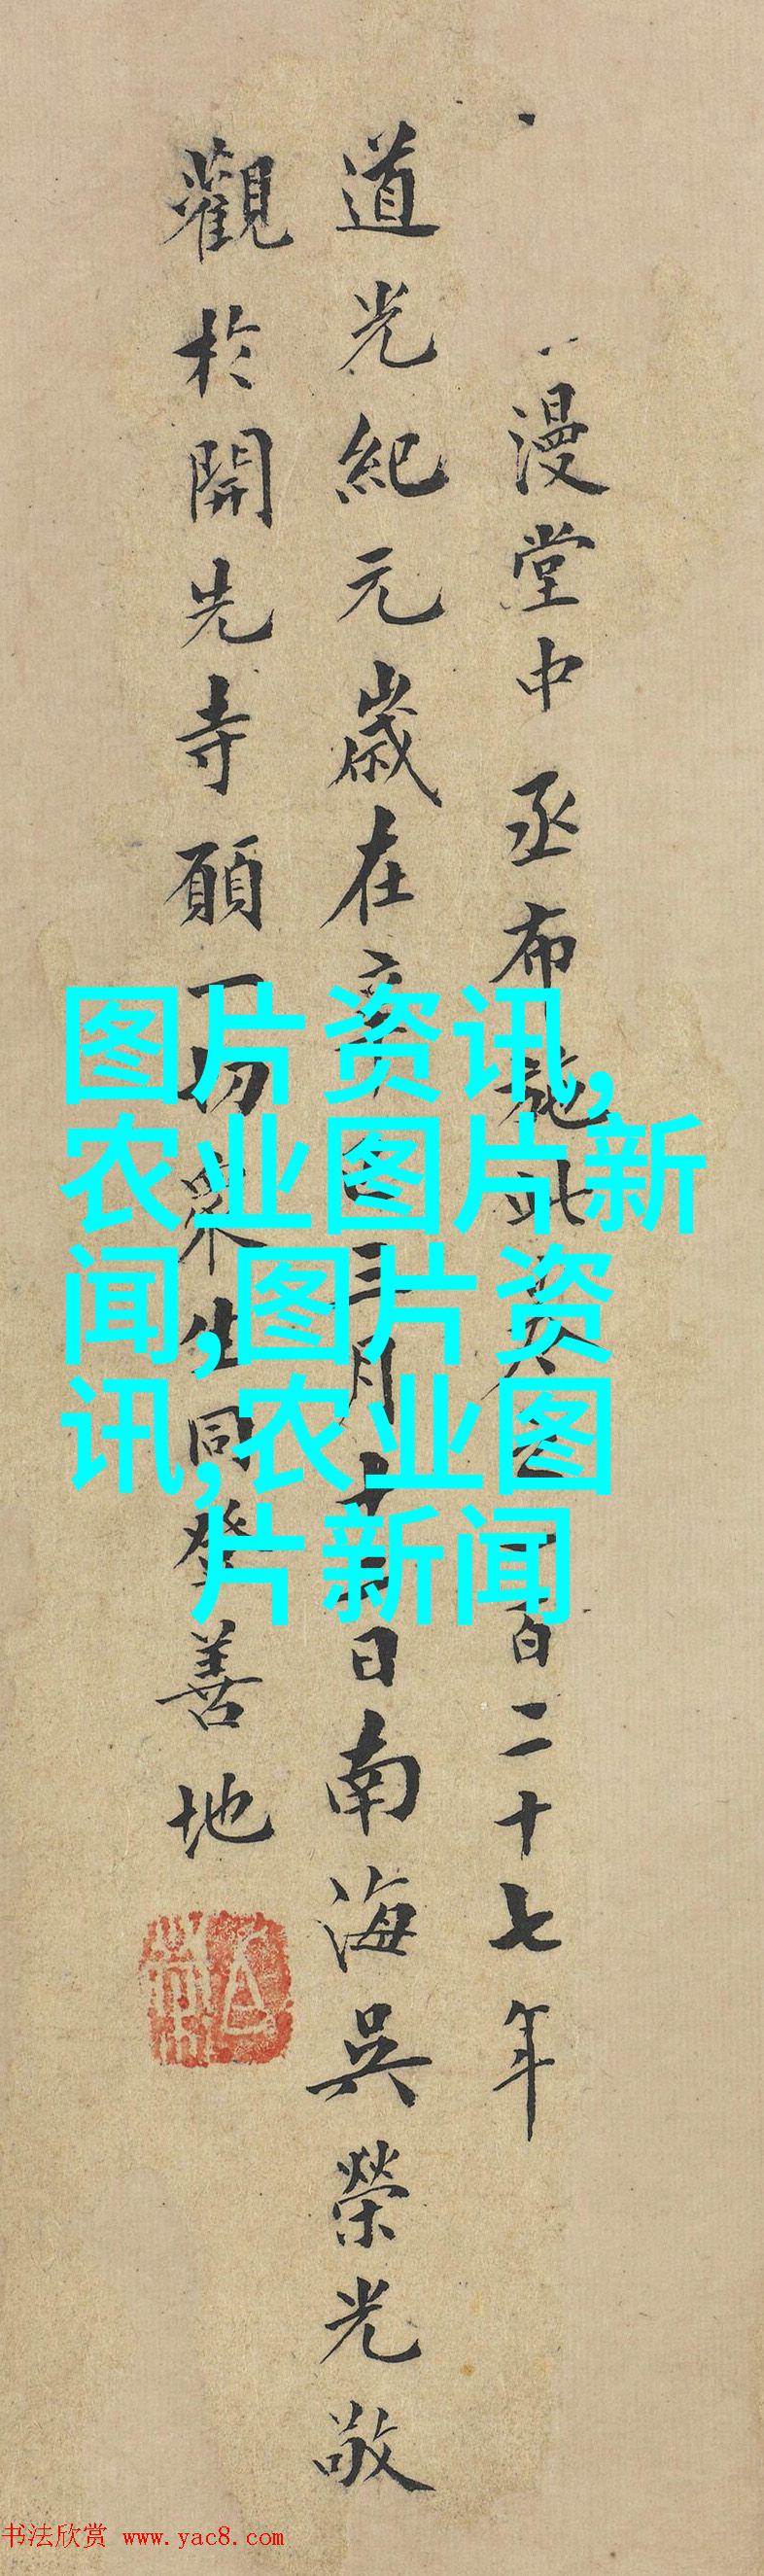 漫堂中丞布施此百二十七年
道光紀元歲在辛巳三月十日南海吳榮光敬
觀於開先寺願一切衆生同登善地
图片资讯,
农业图片新
闻,图片资
讯,农业图
片新闻
书法欣赏 www.yac8.com